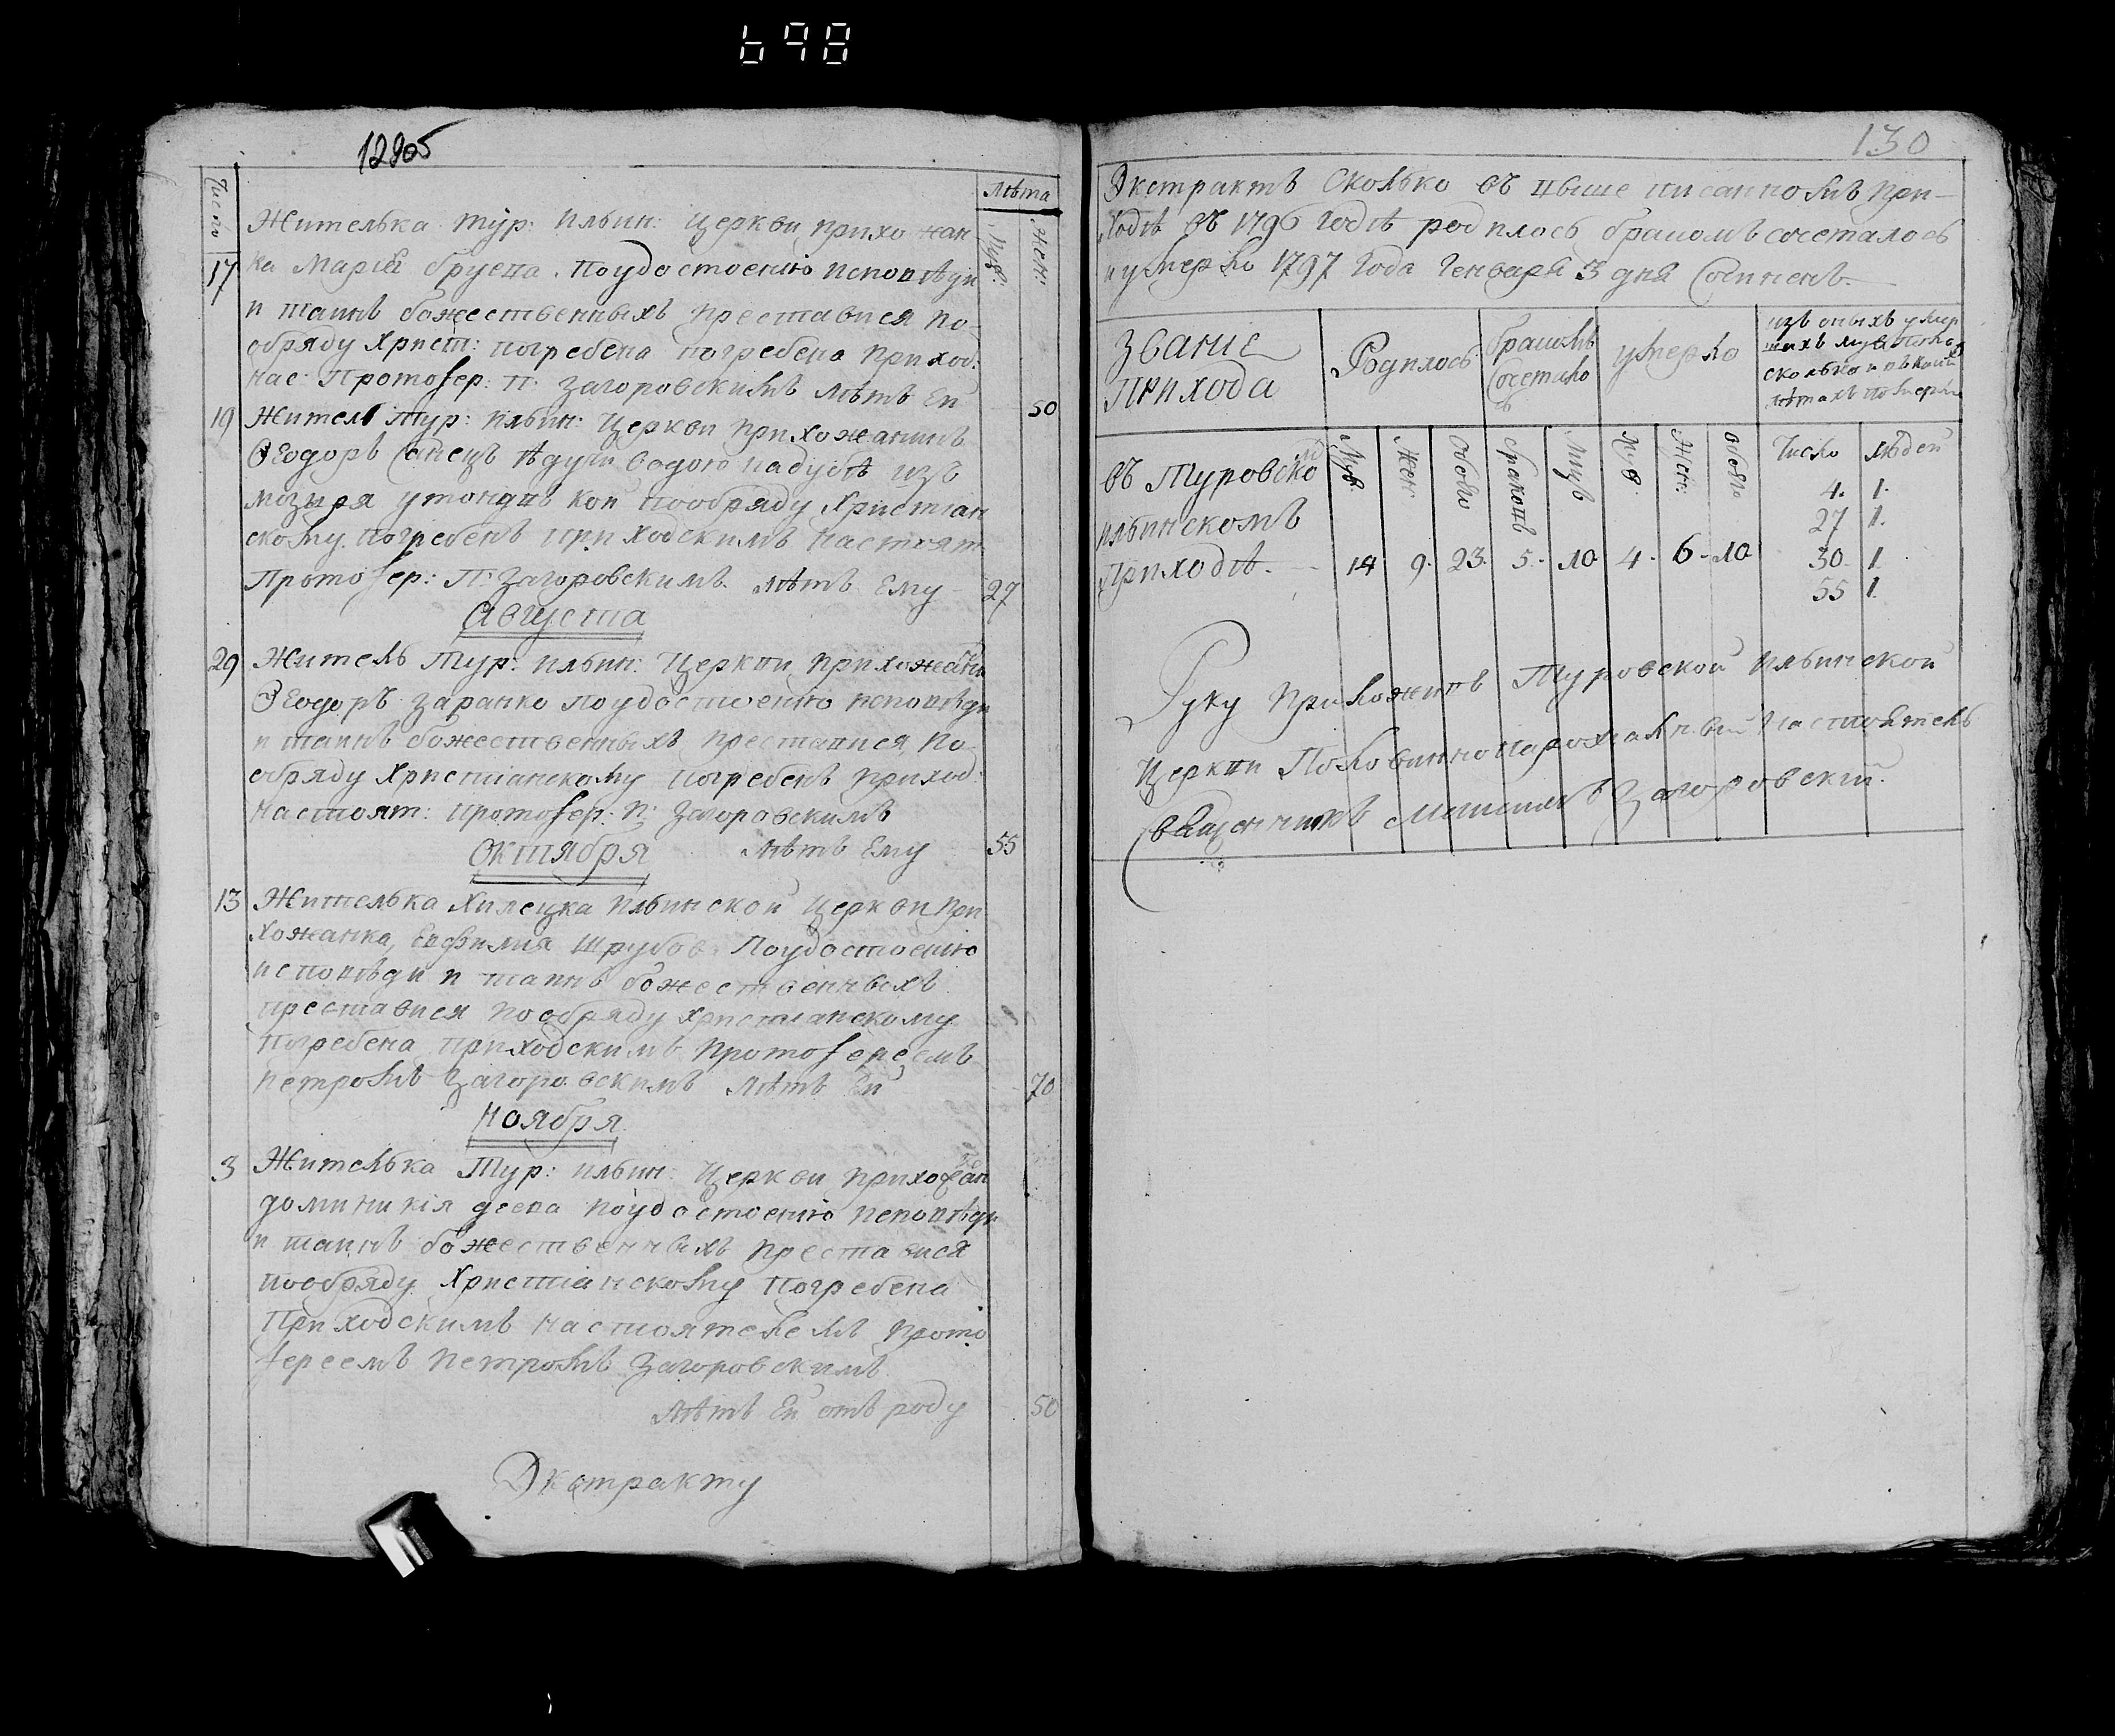 698
128об
Число
Лѣта
Муж:
Жен:
Жителька Тур: Ильин: Церкви прихожан
17 ка Марія Бруева Поудостоенію исповѣди
и таинъ божественныхъ преставися по
обряду Христ: погребена погребена приход:
нас: Протоіер: П: Загоровскимъ лѣтъ Ей 50
19 Житель Тур: Ильин: Церкви прихожанинъ
Ѳеодоръ едучи водою надубѣ изъ
мозыря утонувъ кой пообряду Христіан
скому погребенъ приходскимъ настоят
Протоіер: П: Загоровскимъ лѣтъ Ему 27
Августа
29 Житель Тур: Ильин: Церкви прихожани
Ѳеодоръ Заранко поудостоенію исповѣди
и таинъ божественныхъ преставися По
обряду Христіанскому погребенъ приход:
настоят: протоіер: П: Загоровскимъ
Октября лѣтъ Ему 55
13 Жителька Хилецка Ильинской Церкви При
хожанка, Евфимия Шрубов Поудостоенію
исповѣди и таинъ божественныхъ
преставися пообряду Христіанскому
погребена приходскимъ протоіереемъ
петромъ Загоровскимъ лѣтъ Ей 70
Ноября
3 Жителька Тур: Ильин: Церкви прихожан
доминикія деева поудостоенію исповѣди
и таинъ божественныхъ преставися
пообряду Христіанскому погребена
Приходскимъ настоятелемъ прото
іереемъ петромъ Загоровскимъ
лѣтъ Ей отъ роду 50
Экстракту
130
Экстрактъ Сколько въ вышеписанномъ при-
ходѣ въ 1796 годѣ родилось бракомъ сочеталось
и умерло 1797 года Генваря 3 дня Сочиненъ
Званіе Прихода
Родилось
бракомъ Сочетало сь
умерло
изъ оныхъ умер
шихъ муж: пола
сколько и в каких
лѣтах померли
Муж. Жен: Обоего браковъ лицъ Муж. Жен: обоего Число людей
въ Туровском
ильинскомъ
Приходѣ. 14 9. 23. 5. 10 4. 6 10
4. 1.
27 1.
30. 1.
55 1.
Руку приложилъ Туровской ильинской
Церкви Половиннопарохіальный Настоятель
Священникъ Загоровскій.